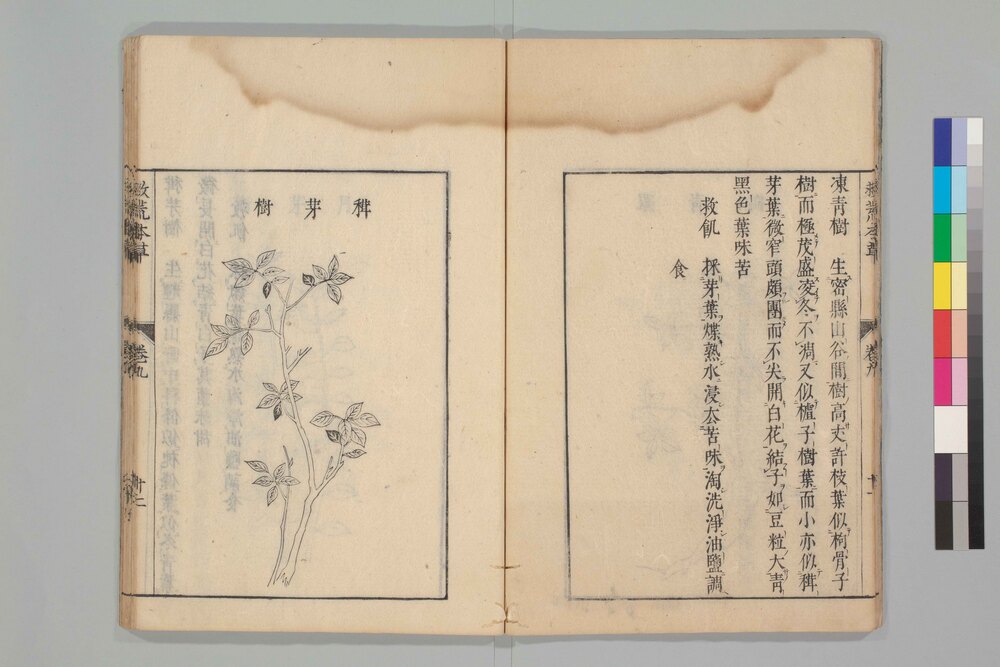 凍青樹 生密縣山谷間樹高丈許枝葉似枸骨子
樹而極茂盛凌冬不凋又似櫨子樹葉而小亦似稗
芽葉微窄頭頗團而不尖開白花結子如豆粒大青
黑色葉味苦
救飢 採芽葉煠熟水浸去苦味淘洗淨油鹽調
食
救荒本草
卷九
稗芽樹
救荒本草
卷九
十二